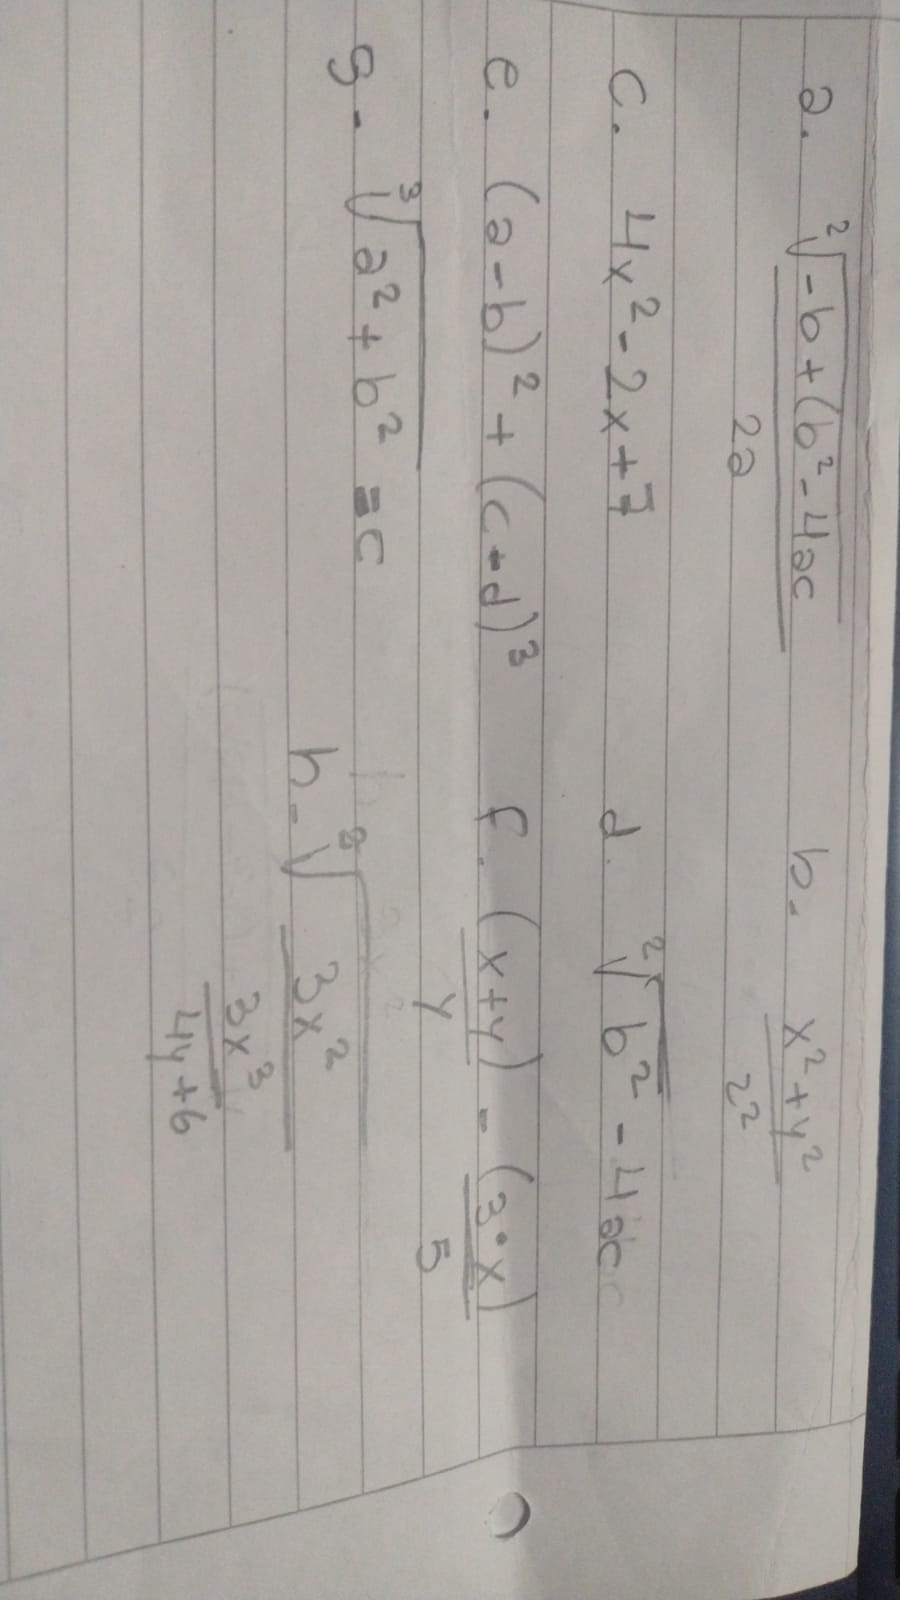 a. ²√-b+(b²-4ac b. x²+y²
2a 2²
c. 4x²-2x+7 d. ²√b²-4ac
e. (a-b)²+(c+d)³ f. (x+y) - (3·x)
y 5
g- ³√a²+b² =c
h- ²√3x²
3x³
4y+6